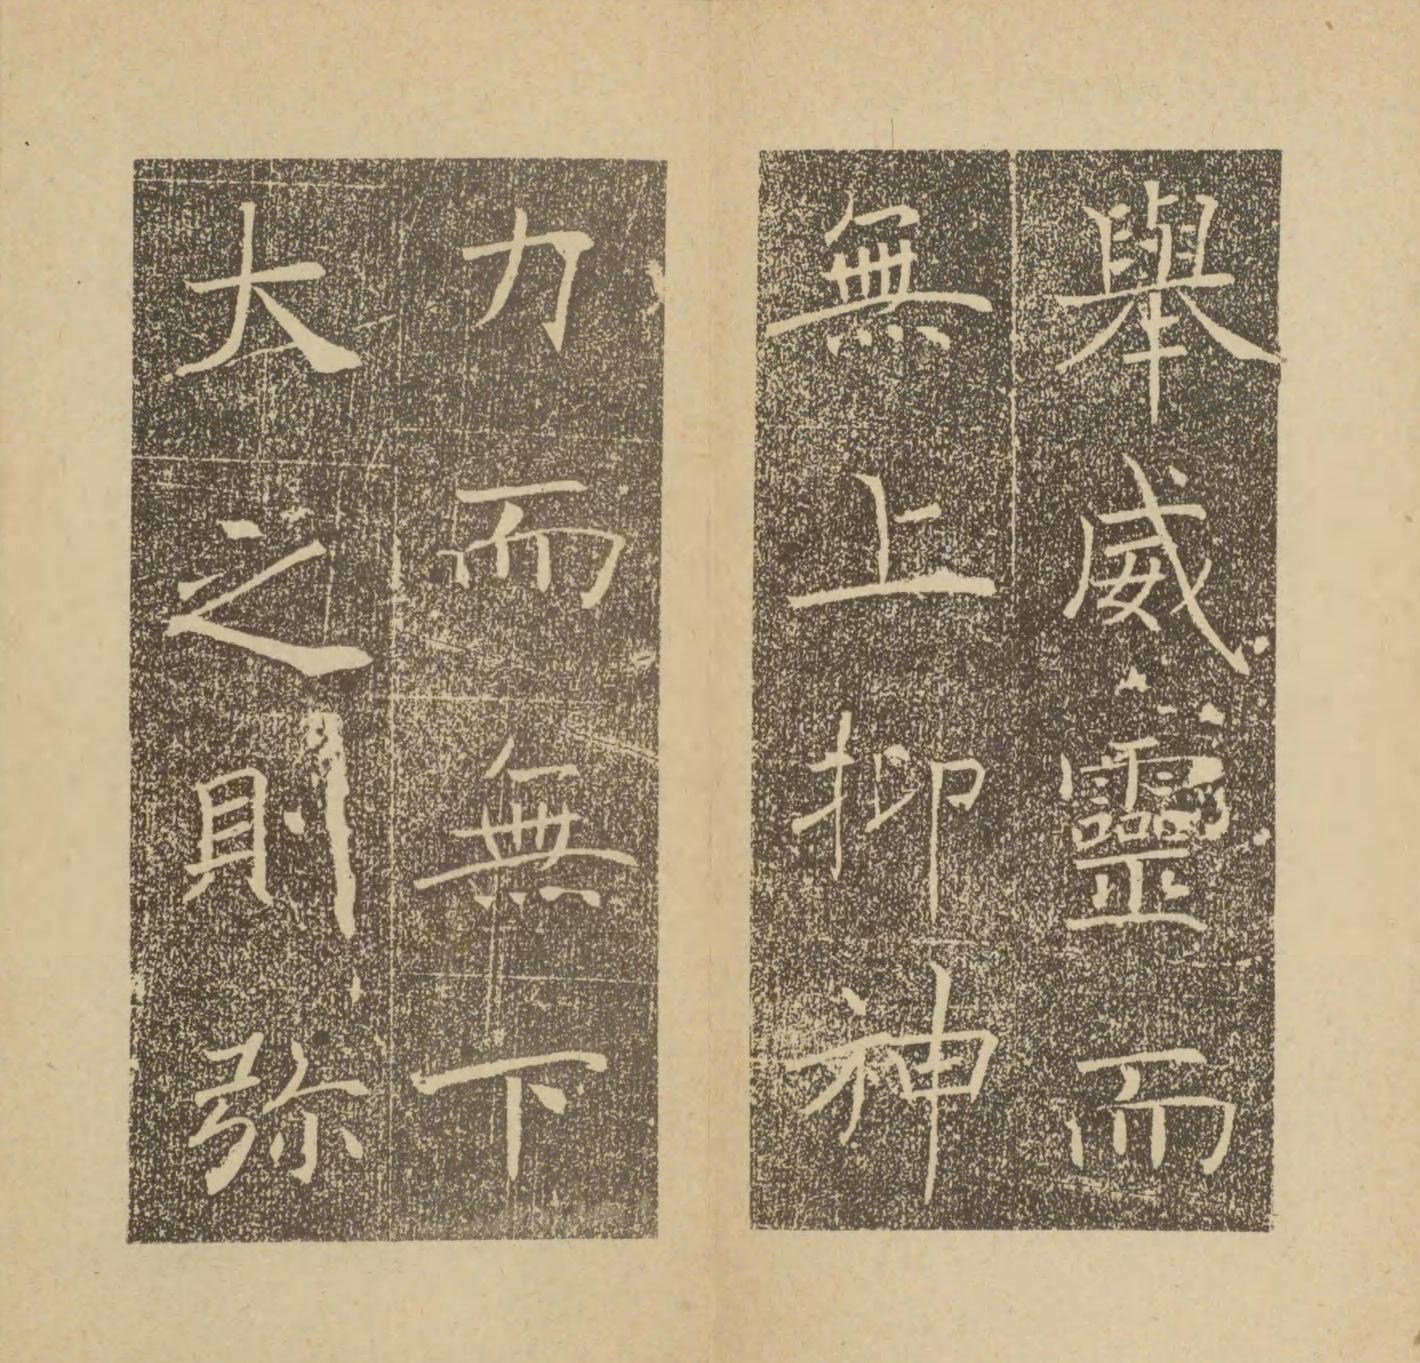 舉威靈而
無上抑神
力而無下
大之則弥